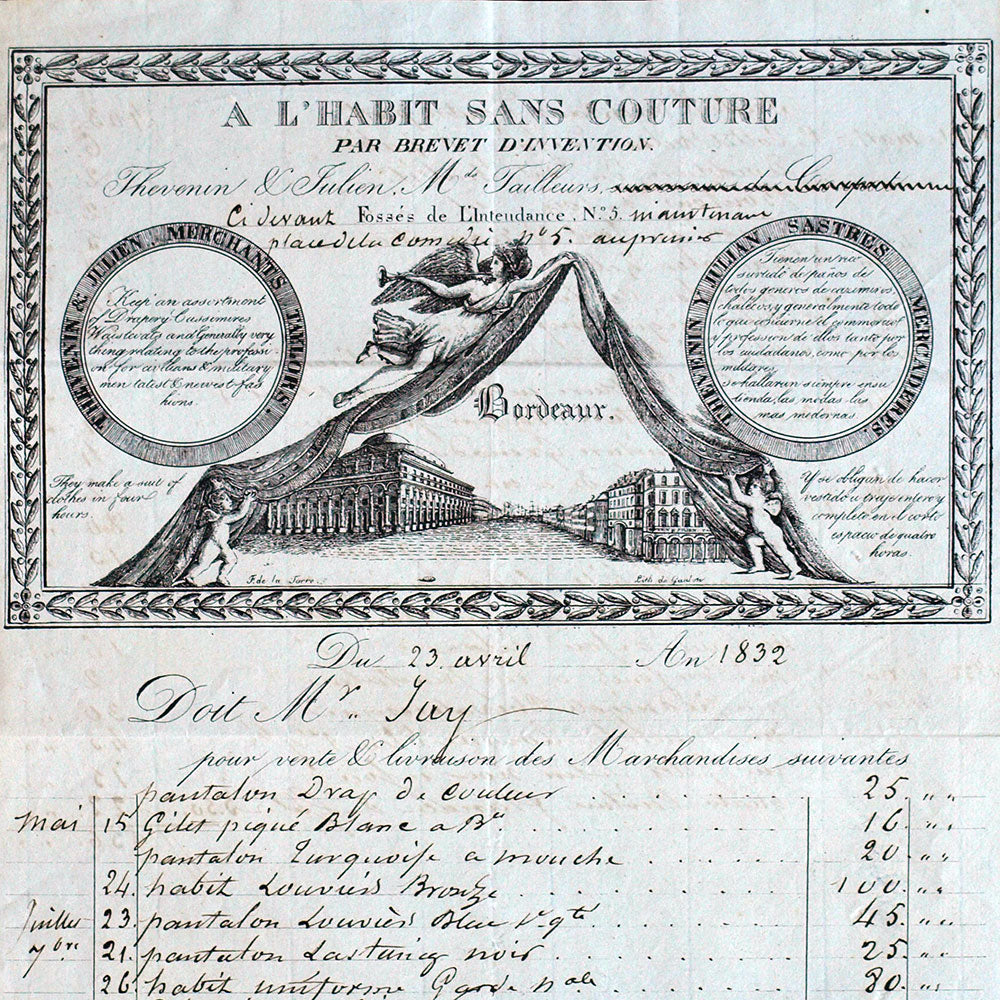 A L'HABIT SANS COUTURE
PAR BREVET D'INVENTION.
Thevenin & Julien, Mds Tailleurs,
Ci devant Fossés de L'Intendance, No. 5. maintenant
place de la Comedie No 5. au premier
THEVENIN & JULIEN, MERCHANTS TAILORS.
Keep an assortment
of Drapery Cassimeres
Waistcoats and Generally very
theng relating to the professi-
on for civilians & military
men latest & newest fas
hions.
They make a suit of
clothes in four
hours.
Bordeaux.
THEVENIN Y JULIAN, SASTRES MERCADERES
Tienen un rico
surtido de paños de
todos generos de cazimiros,
chalecos, y generalmente todo
lo que concierne el commercio
y profession de ellos tanto por
los ciudadanos, como por los
militares,
se hallaran siempre en su
tienda, las modas las
mas modernas.
Y se obligan de hacer
vestido o traje entero y
completo en el corto
espacio de quatro
horas.
F. de la Torre.
Lith de Gaulon
Du 23 avril An 1832
Doit Mr. Jay
pour vente & livraison des Marchandises suivantes
pantalon Drap de Couleur 25. " "
Mai 15 Gilet piqué Blanc a Bn. 16. " "
pantalon Turquoise a mouche 20. " "
24. habit Louviers Bronze 100. " "
Juillet 23. pantalon Louviers Bleu 1e qté 45. " "
7bre 21. pantalon Lasting noir 25. " "
26. habit uniforme Garde nale 80. " "